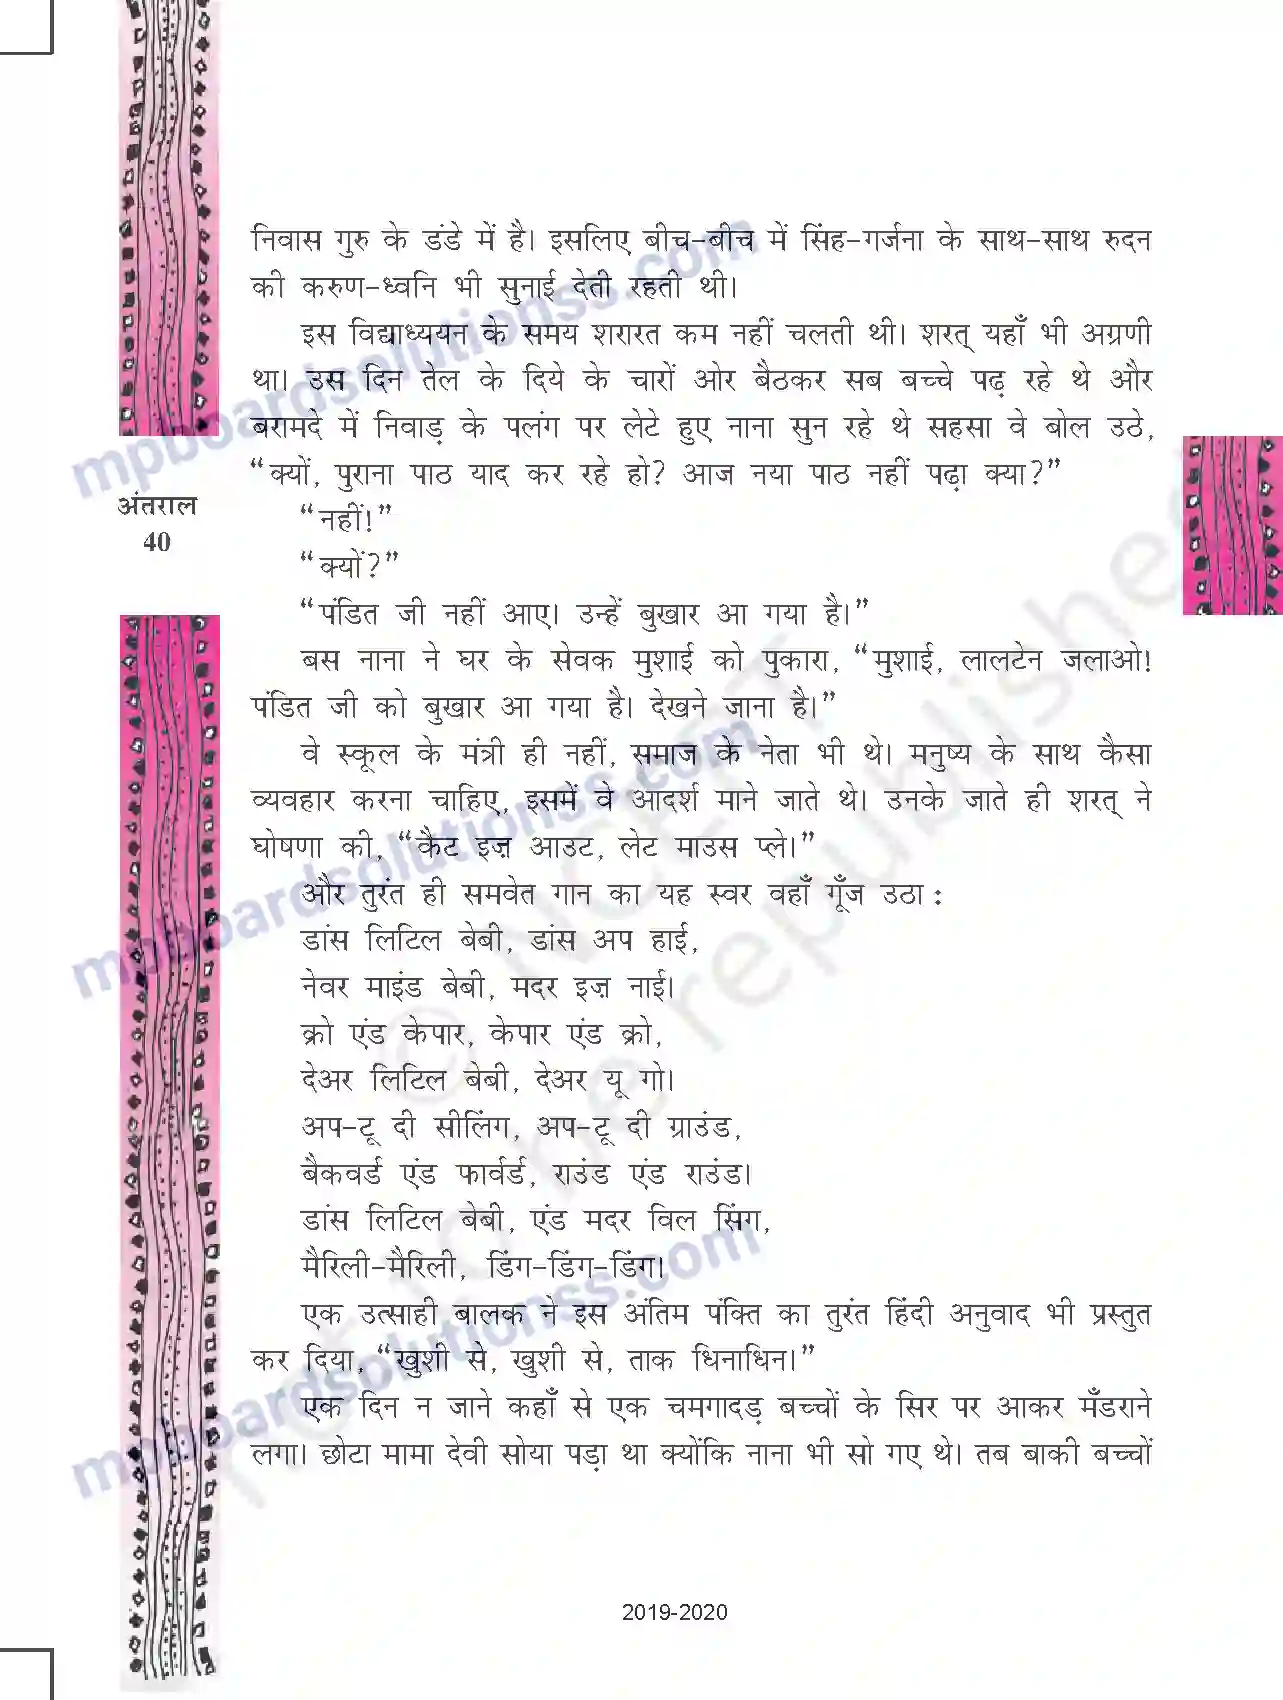 निवास गुरु के डंडे में है। इसलिए बीच-बीच में सिंह-गर्जना के साथ-साथ रुदन
की करुण-ध्वनि भी सुनाई देती रहती थी।
इस विद्याध्ययन के समय शरारत कम नहीं चलती थी। शरत् यहाँ भी अग्रणी
था। उस दिन तेल के दिये के चारों ओर बैठकर सब बच्चे पढ़ रहे थे और
बरामदे में निवाड़ के पलंग पर लेटे हुए नाना सुन रहे थे सहसा वे बोल उठे,
“क्यों, पुराना पाठ याद कर रहे हो? आज नया पाठ नहीं पढ़ा क्या?”
अंतराल
40
“नहीं!”
“क्यों?”
“पंडित जी नहीं आए। उन्हें बुखार आ गया है।”
बस नाना ने घर के सेवक मुशाई को पुकारा, “मुशाई, लालटेन जलाओ!
पंडित जी को बुखार आ गया है। देखने जाना है।”
वे स्कूल के मंत्री ही नहीं, समाज के नेता भी थे। मनुष्य के साथ कैसा
व्यवहार करना चाहिए, इसमें वे आदर्श माने जाते थे। उनके जाते ही शरत् ने
घोषणा की, “कैट इज़ आउट, लेट माउस प्ले।”
और तुरंत ही समवेत गान का यह स्वर वहाँ गूँज उठा :
डांस लिटिल बेबी, डांस अप हाई,
नेवर माइंड बेबी, मदर इज़ नाई।
क्रो एंड केपार, केपार एंड क्रो,
देअर लिटिल बेबी, देअर यू गो।
अप-टू दी सीलिंग, अप-टू दी ग्राउंड,
बैकवर्ड एंड फार्वर्ड, राउंड एंड राउंड।
डांस लिटिल बेबी, एंड मदर विल सिंग,
मैरिली-मैरिली, डिंग-डिंग-डिंग।
एक उत्साही बालक ने इस अंतिम पंक्ति का तुरंत हिंदी अनुवाद भी प्रस्तुत
कर दिया, “खुशी से, खुशी से, ताक धिनाधिन।”
एक दिन न जाने कहाँ से एक चमगादड़ बच्चों के सिर पर आकर मँडराने
लगा। छोटा मामा देवी सोया पड़ा था क्योंकि नाना भी सो गए थे। तब बाकी बच्चों
2019-2020
mpboardsolutionss.com
mpboardsolutionss.com
mpboardsolutionss.com
© NCERT
not to be republished